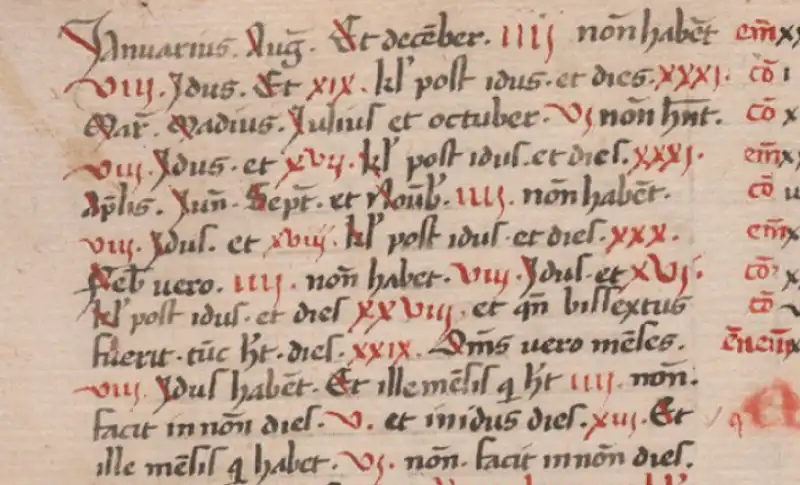 Januarius. Aug̃. Et decēber. IIIJ nōn habēt em̄ x
VIIJ. Idus. Et XIX. kl' post idus. et dies. XXXJ. cō i
Mar̄. Madius. Julius et octuber. VJ nōn hn̄t. cō x
VIIJ. Idus. et XVIJ. kl' post idus. et dies. XXXJ. em̄ x
Ap̄lis. Jun̄. Sept̄. et Noūb'. IIIJ. nōn habēt. cō u
VIIJ. Idus. et XVIIJ. kl' post idus. et dies. XXX. em̄ x
Feb' uero. IIIJ. nōn habet. VIIJ. Idus. et XVJ. cō x
kl' post idus. et dies XXVIIJ. et qn̄ bissextus cō
fuerit. tūc h̄t. dies. XXIX. Om̄s uero mēses.
VIIJ. Idus habēt. Et ille mēsis q h̄t IIIJ. nōn.
facit in nōn dies. V. et in idus dies. XIIJ. Et
ille mēsis q habet. VJ. nōn. facit in nōn dies.